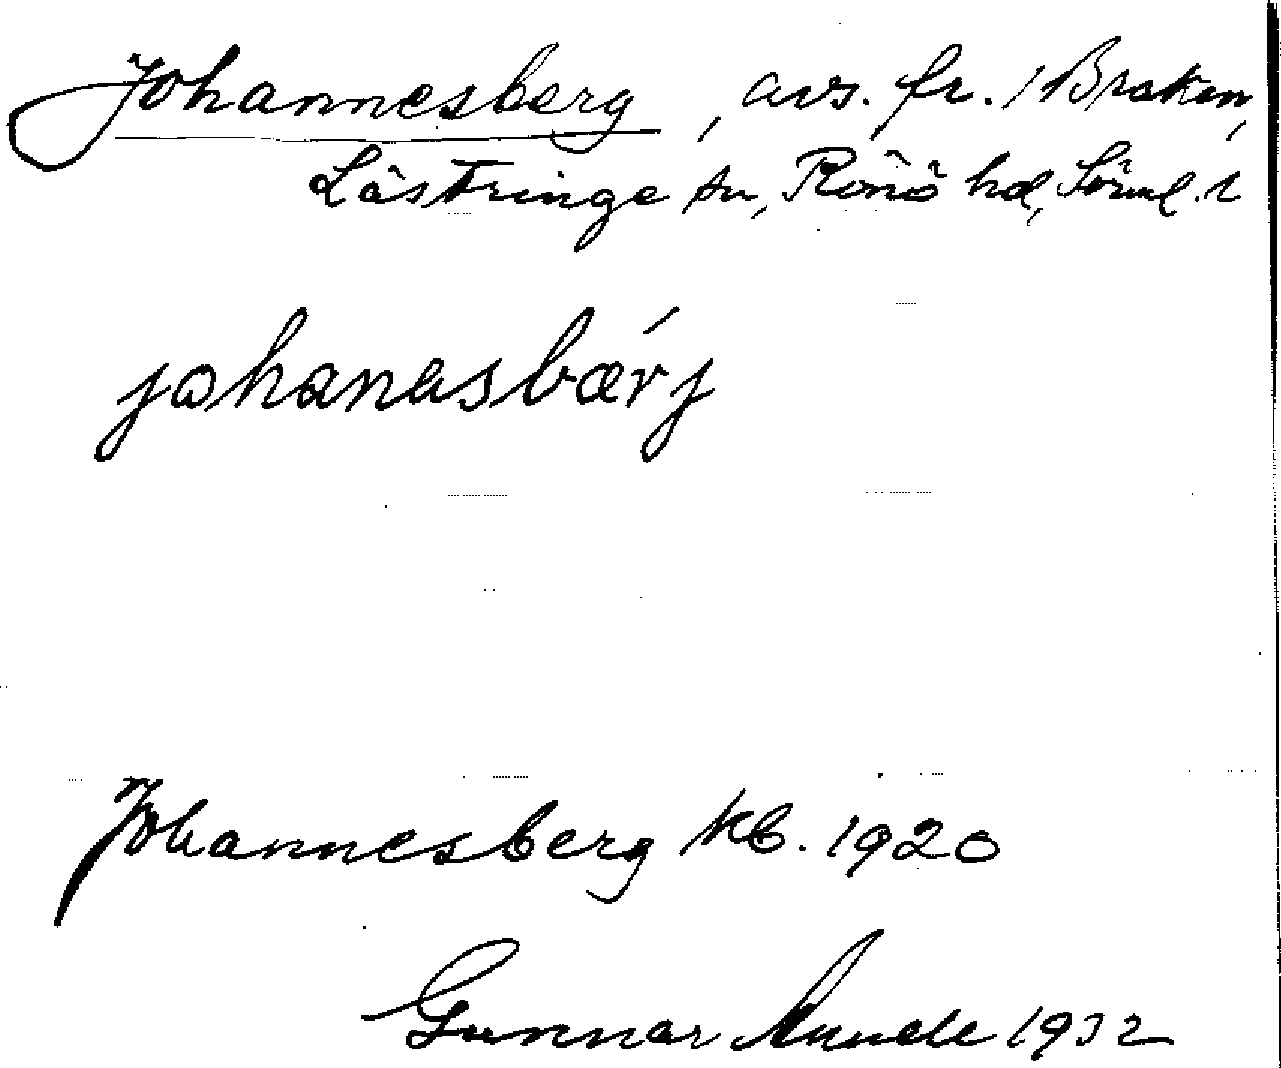 Johannesberg, avs. fr. 1 Braken,
Lästringe sn, Rönö hd, Söml. l
johanasbærj
Johannesberg kb. 1920
Gunnar 1932